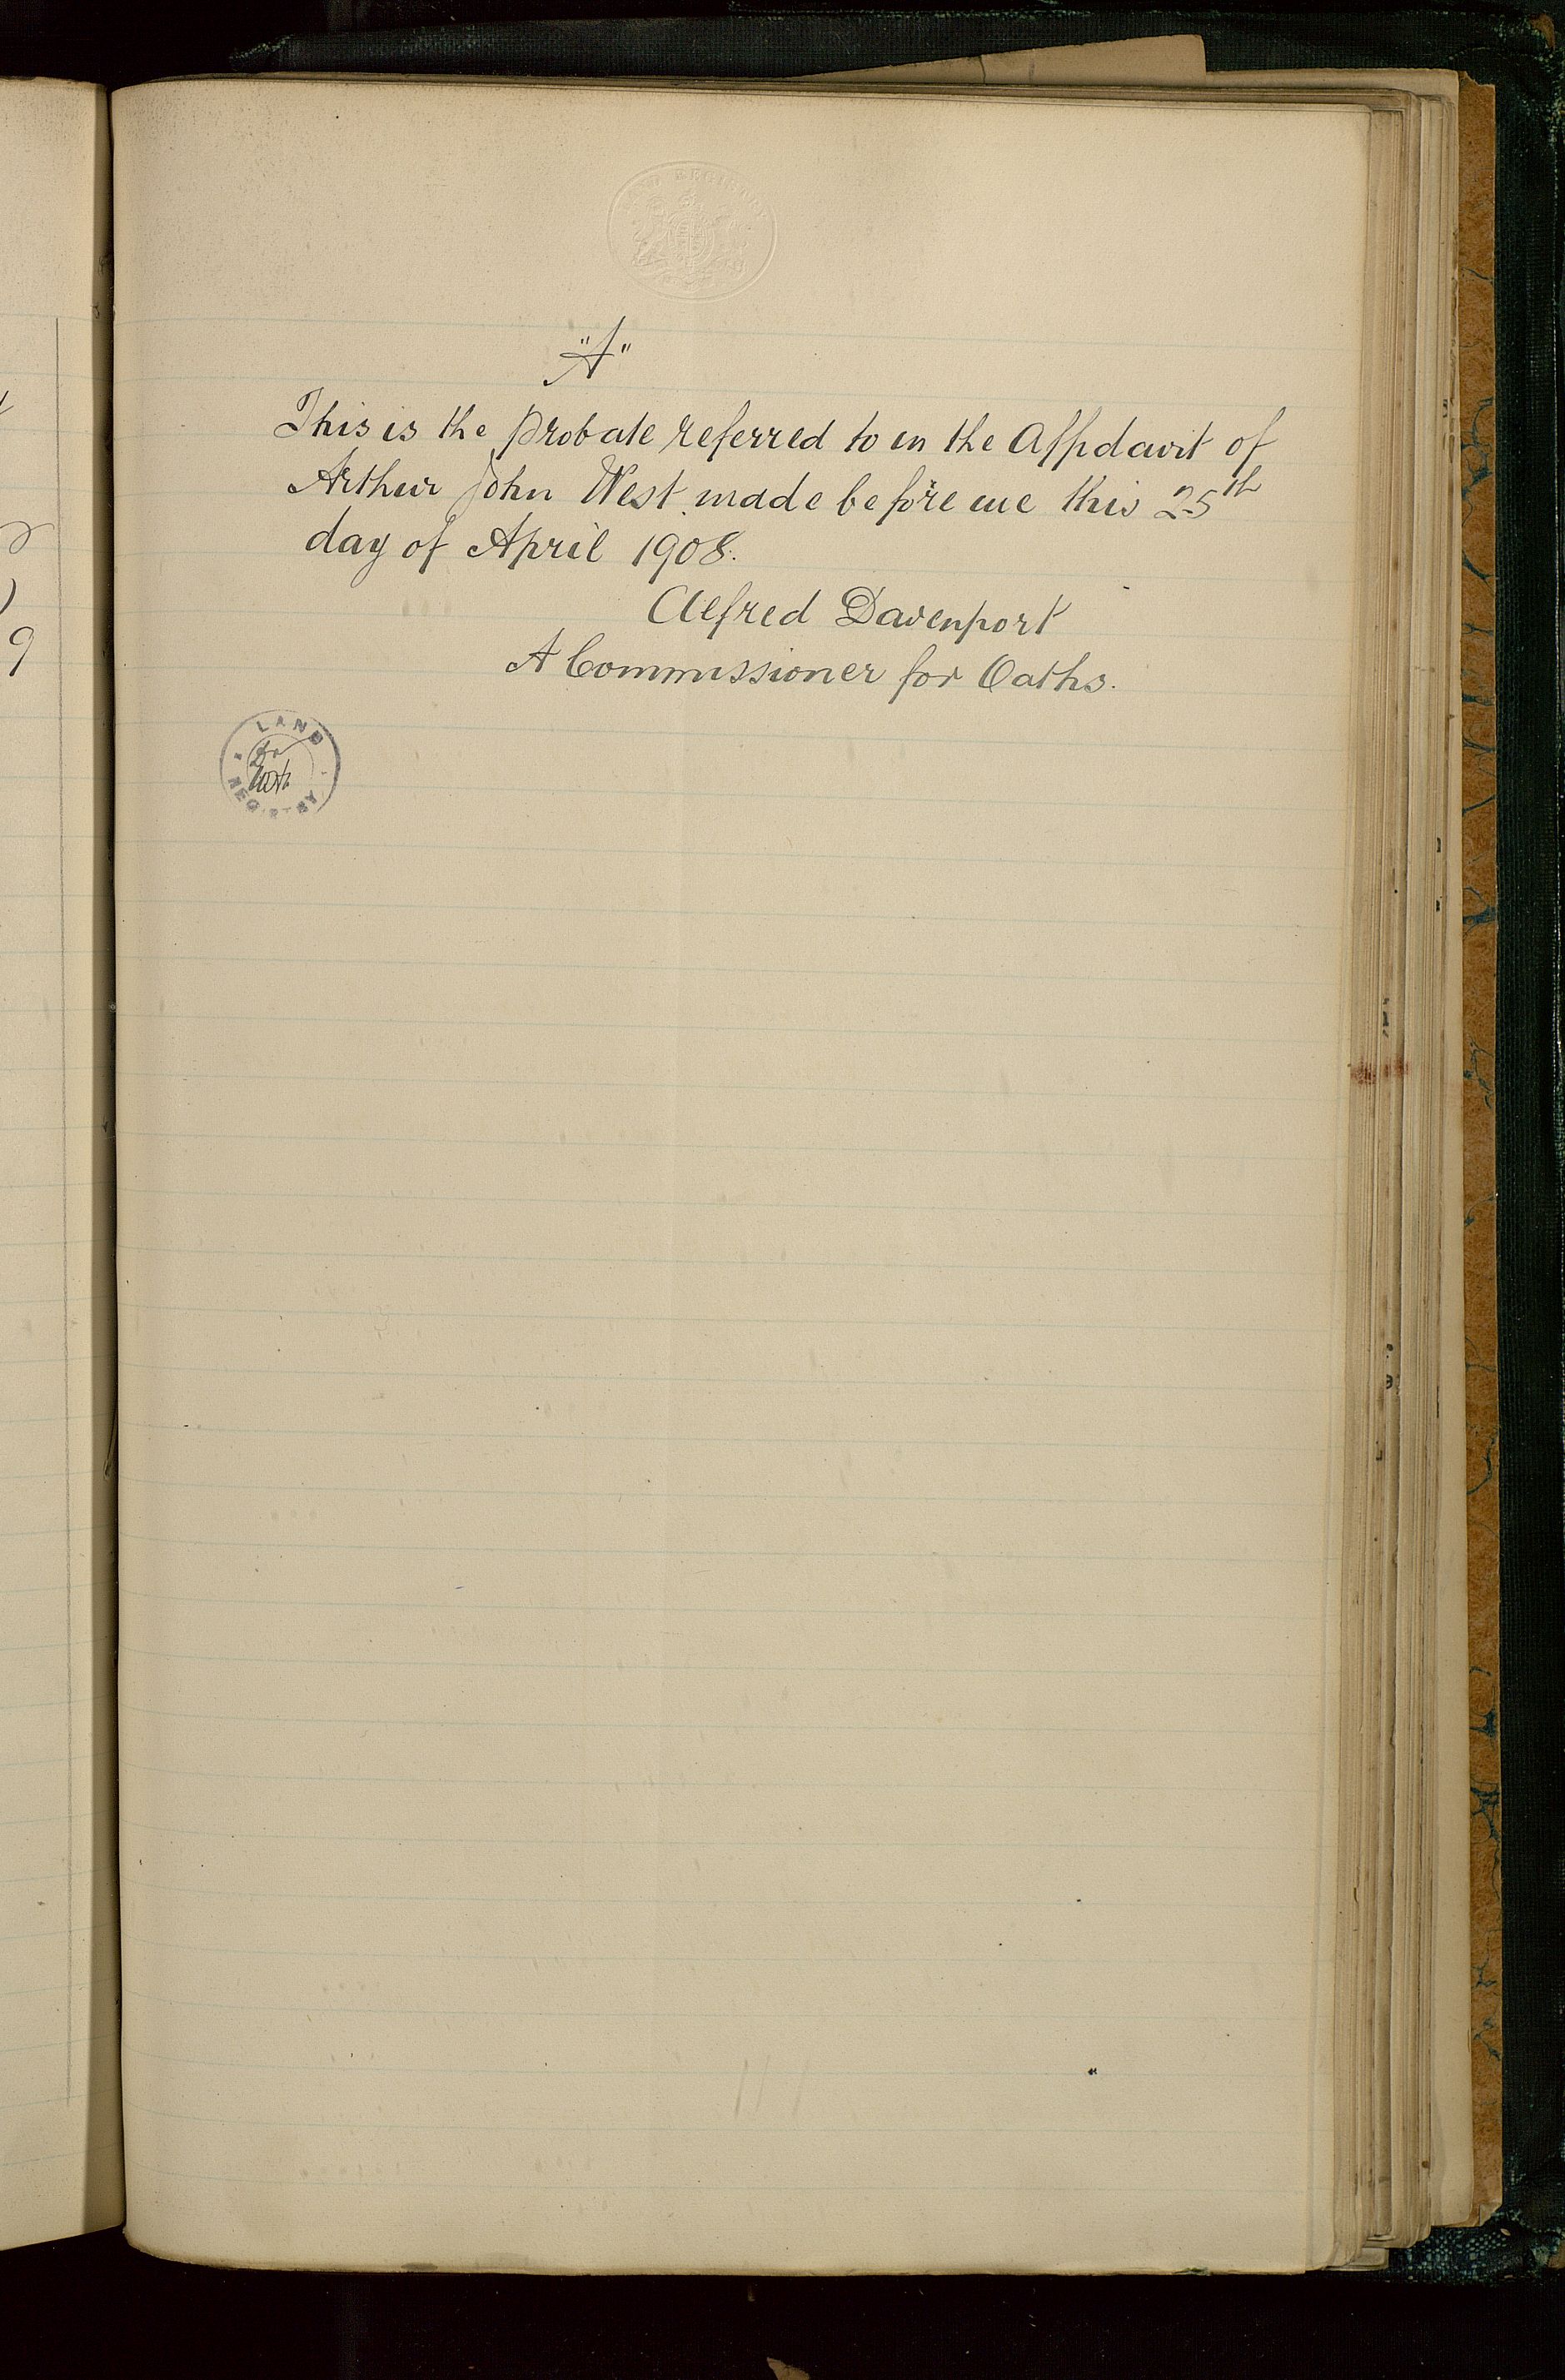 "A"
This is the Probate referred to in the Affidavit of
Arthur John West made before me this 25th
day of April 1908.
Alfred Davenport
A Commissioner for Oaths.
LAND
REGISTRY